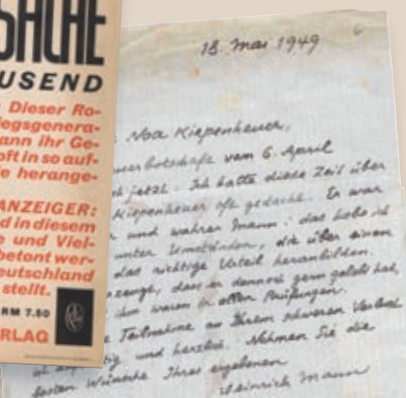 SACHE
USEND
Dieser Ro-
iegsgenera-
ann ihr Ge-
oft in so auf-
e herange-
ANZEIGER:
d in diesem
e und Viel-
betont wer-
eutschland
stellt.
RM 7.50
RLAG
18. Mai 1949
Noa Kiepenheuer,
vom 6. April
jetzt. Ich hatte diese Zeit über
Kiepenheuer oft gedacht. Er war
und wahrer Mann: das habe ich
unter Umständen, die über einen
das richtige Urteil heranbilden.
dass er dennoch gern gelebt hat,
ihm waren in allen Prüfungen.
Teilnahme an Ihrem schweren Verlust
und herzlich. Nehmen Sie die
besten Wünsche Ihres ergebenen
Heinrich Mann